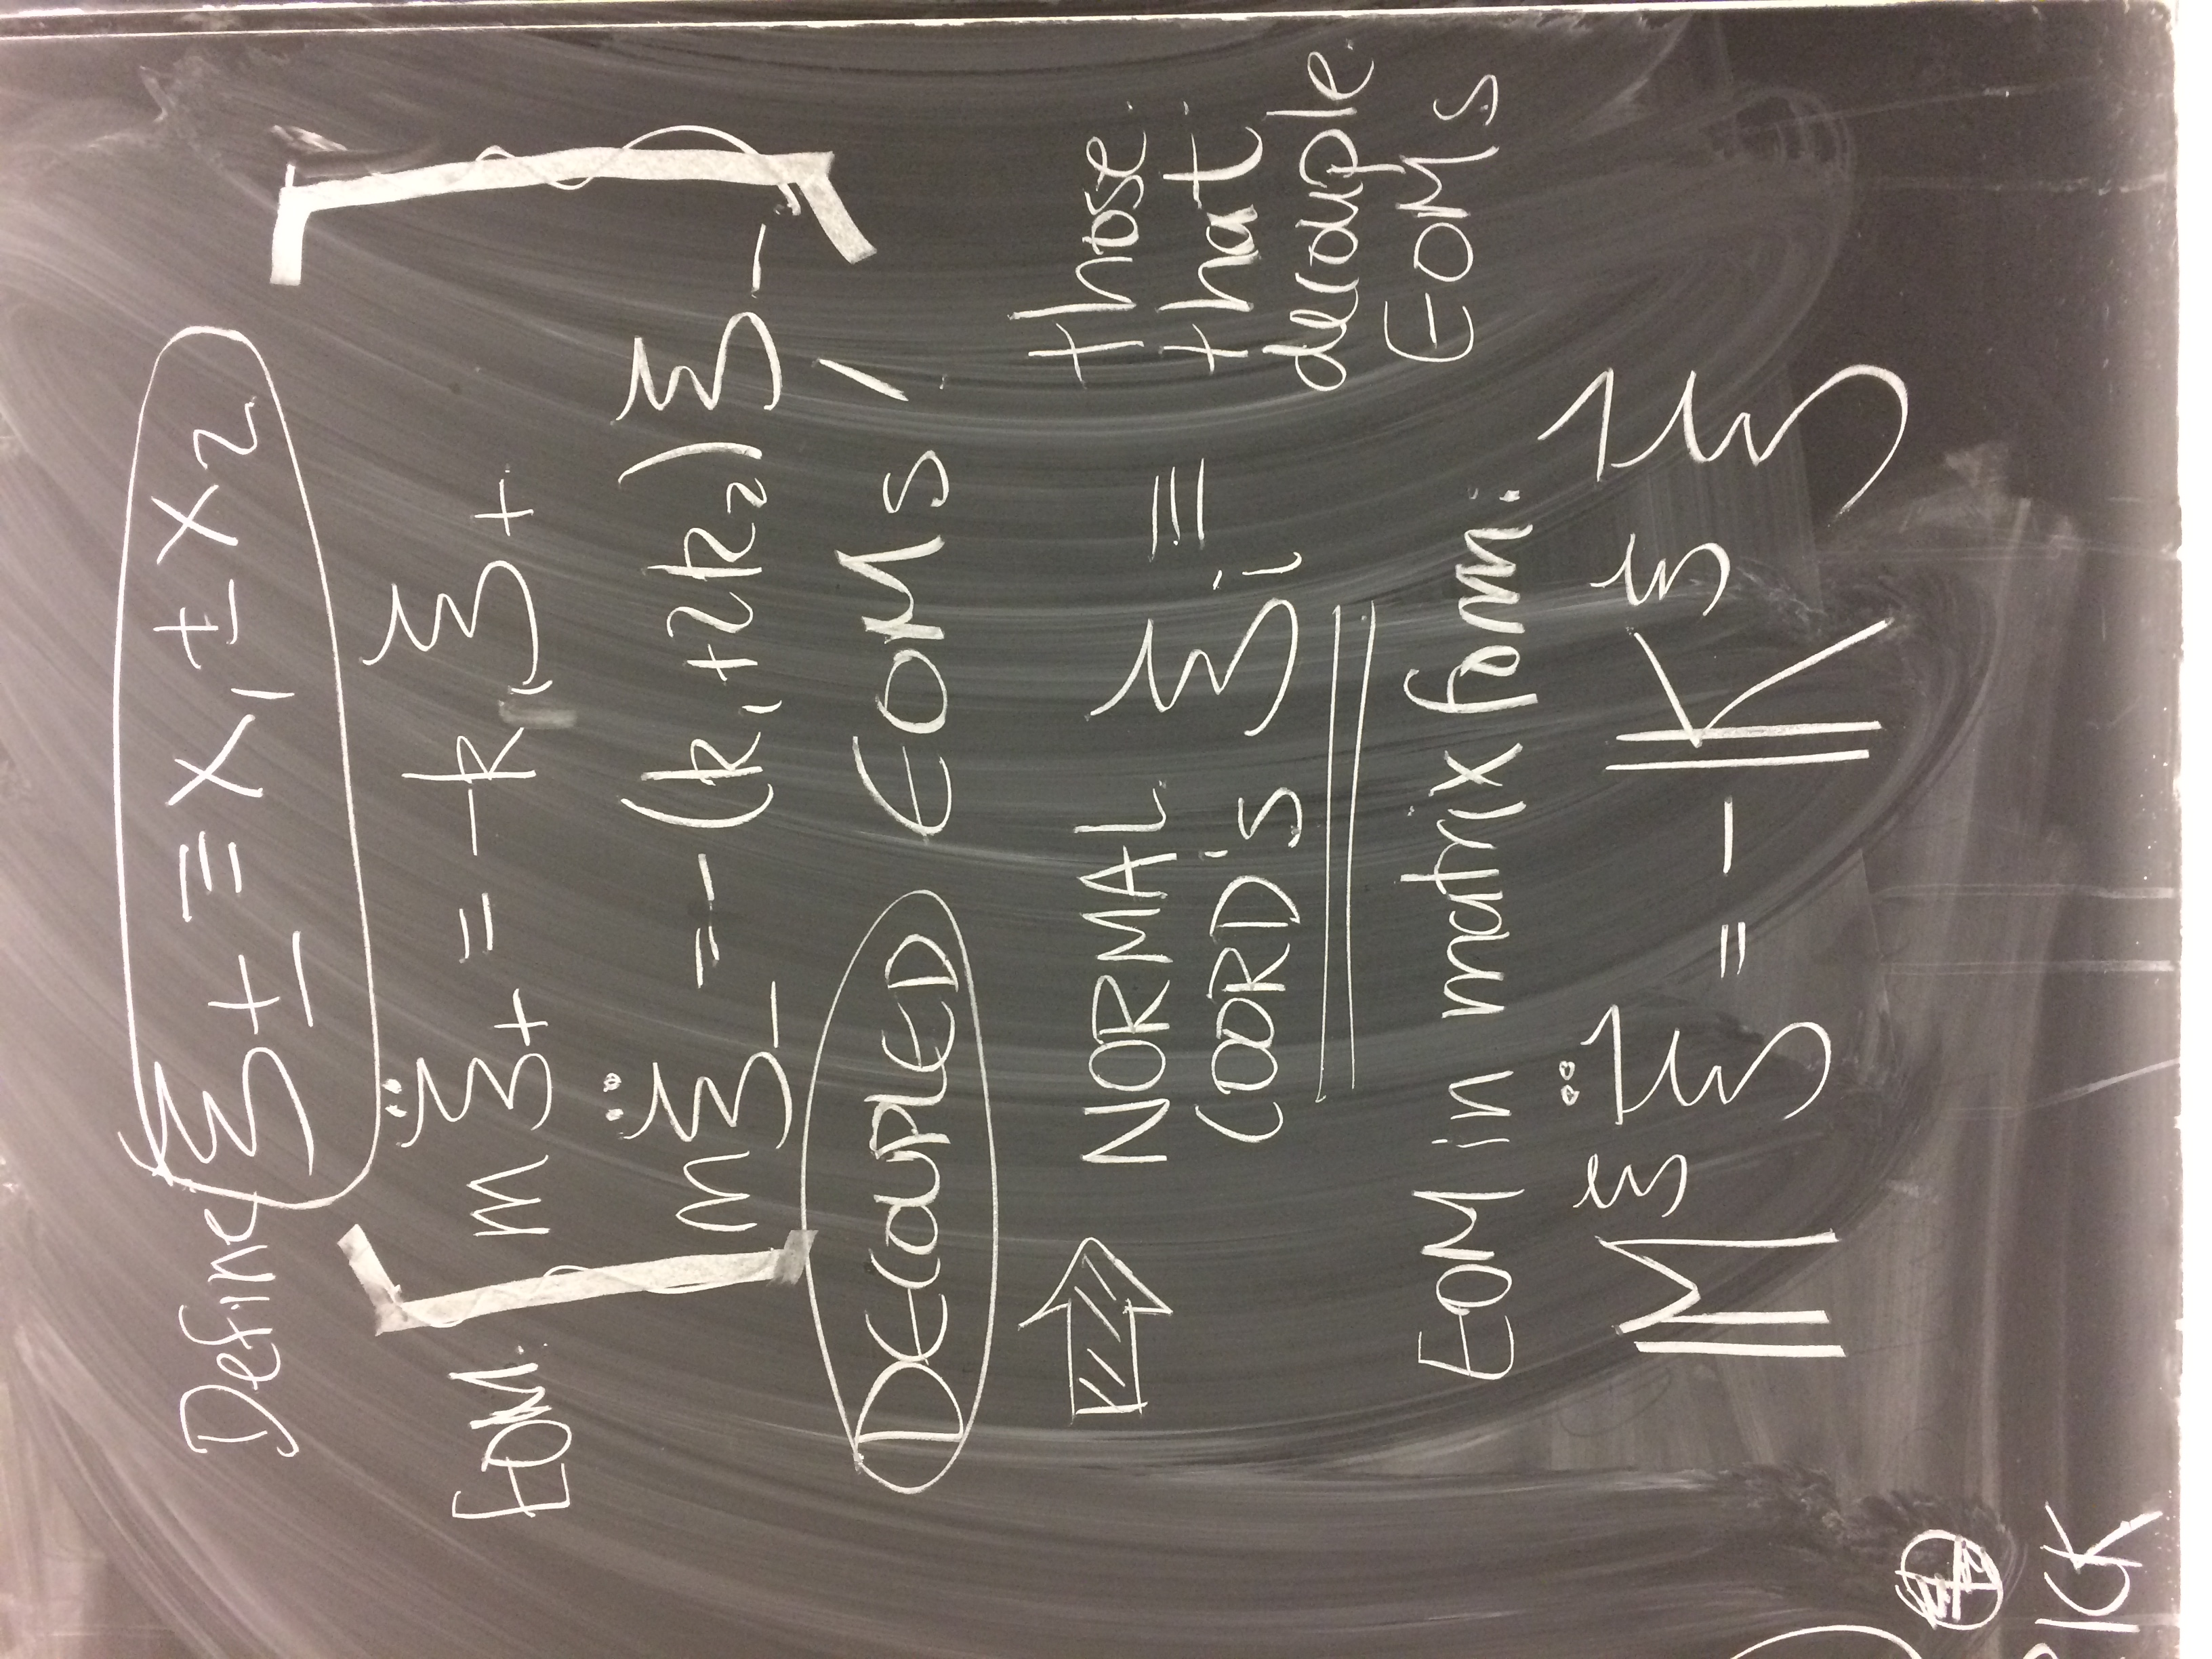 Define ξ± ≡ x₁ ± x₂
EOM: m ξ̈₊ = - k₁ ξ₊
m ξ̈₋ = - (k₁+2k₂) ξ₋
DECOUPLED EOMs!
NORMAL COORD'S ξᵢ ≡ those that decouple EOMs
EOM in matrix form:
M^ξ ξ̈⃗ = - K^ξ ξ⃗